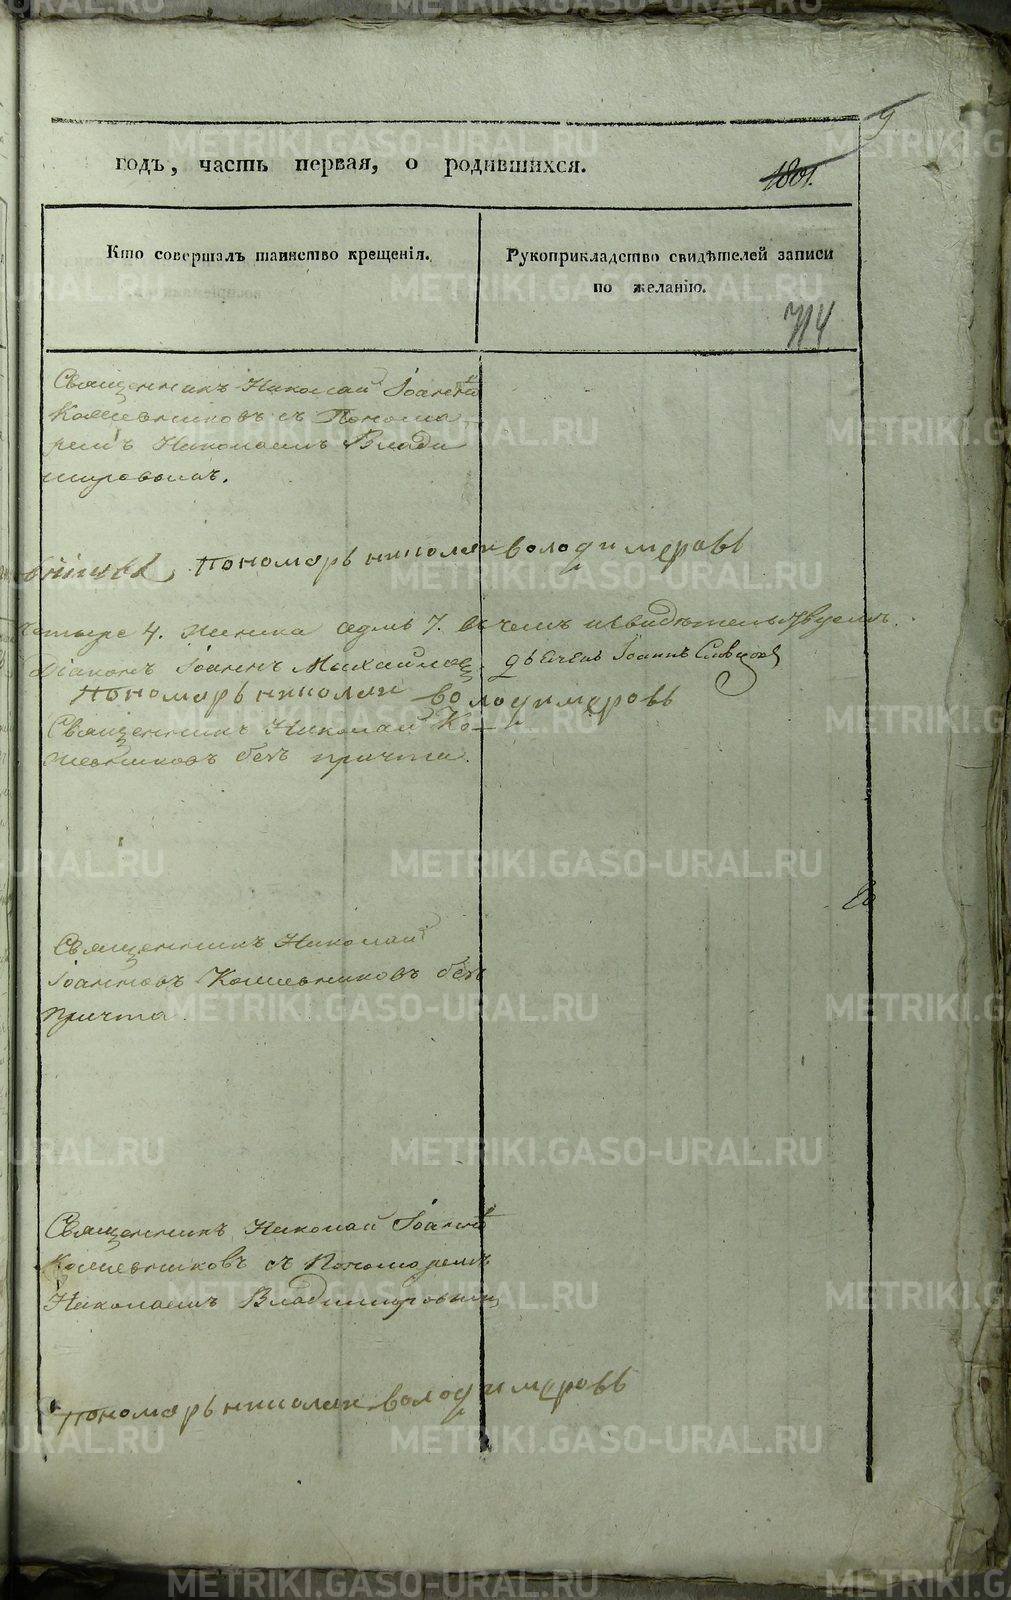 9
годъ, часть первая, о родившихся.
1801.
Кто совершалъ таинство крещенія.
Рукоприкладство свидѣтелей записи
по желанію.
714
Священникъ Николай Іоанновъ
Кожевниковъ съ Понома
ремъ Николаемъ Влади
мировымъ.
Пономарь николаи володимеровъ
четыре 4. женска седмь 7. въ чемъ и свидѣтельствуемъ.
Діаконъ Іоаннъ Михайловъ дьячекъ Іоаннъ Словцовъ
Пономарь николаи володимеровъ
Священникъ Николай Ко-
жевниковъ безъ причта.
Священникъ Николай
Іоанновъ Кожевниковъ безъ
причта.
Священникъ Николай Іоанновъ
Кожевниковъ съ Пономаремъ
Николаемъ Владимировымъ
Пономарь николаи володимеровъ
METRIKI.GASO-URAL.RU